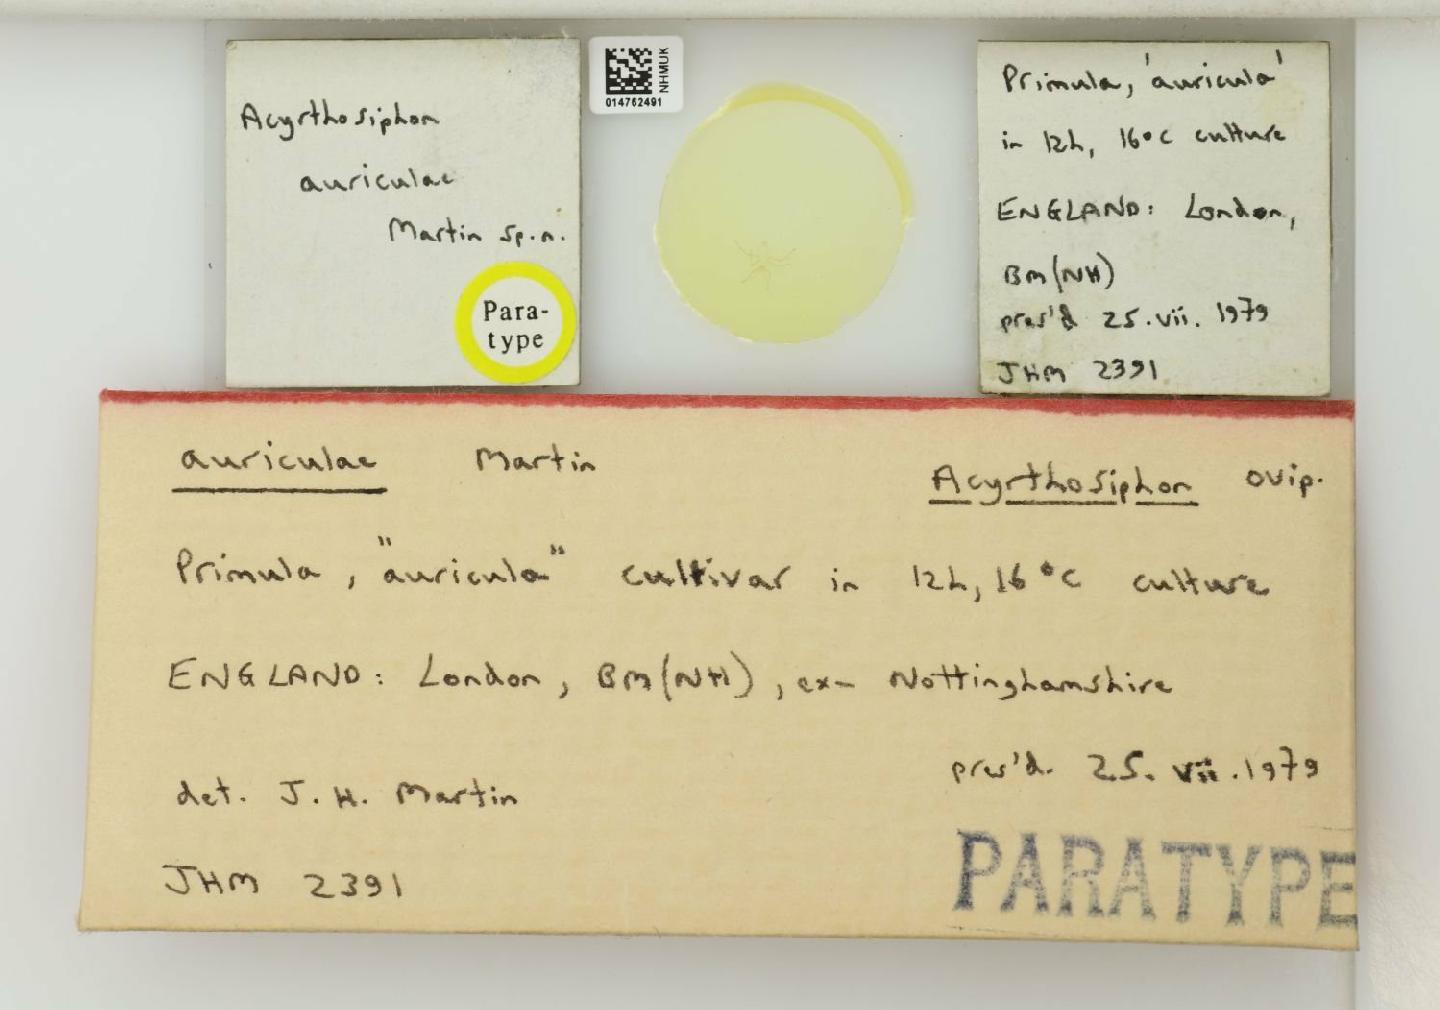 Acyrthosiphon
auriculae
Martin sp.n.
Para-
type
NHMUK
014762491
Primula, 'auricula'
in 12h, 16°C culture
ENGLAND: London,
BM(NH)
pres'd 25.vii.1979
JHM 2391
auriculae Martin Acyrthosiphon ovip.
Primula, "auricula" cultivar in 12h, 16°C culture
ENGLAND: London, BM(NH), ex- Nottinghamshire
pres'd. 25.vii.1979
det. J.H. Martin
JHM 2391
PARATYPE